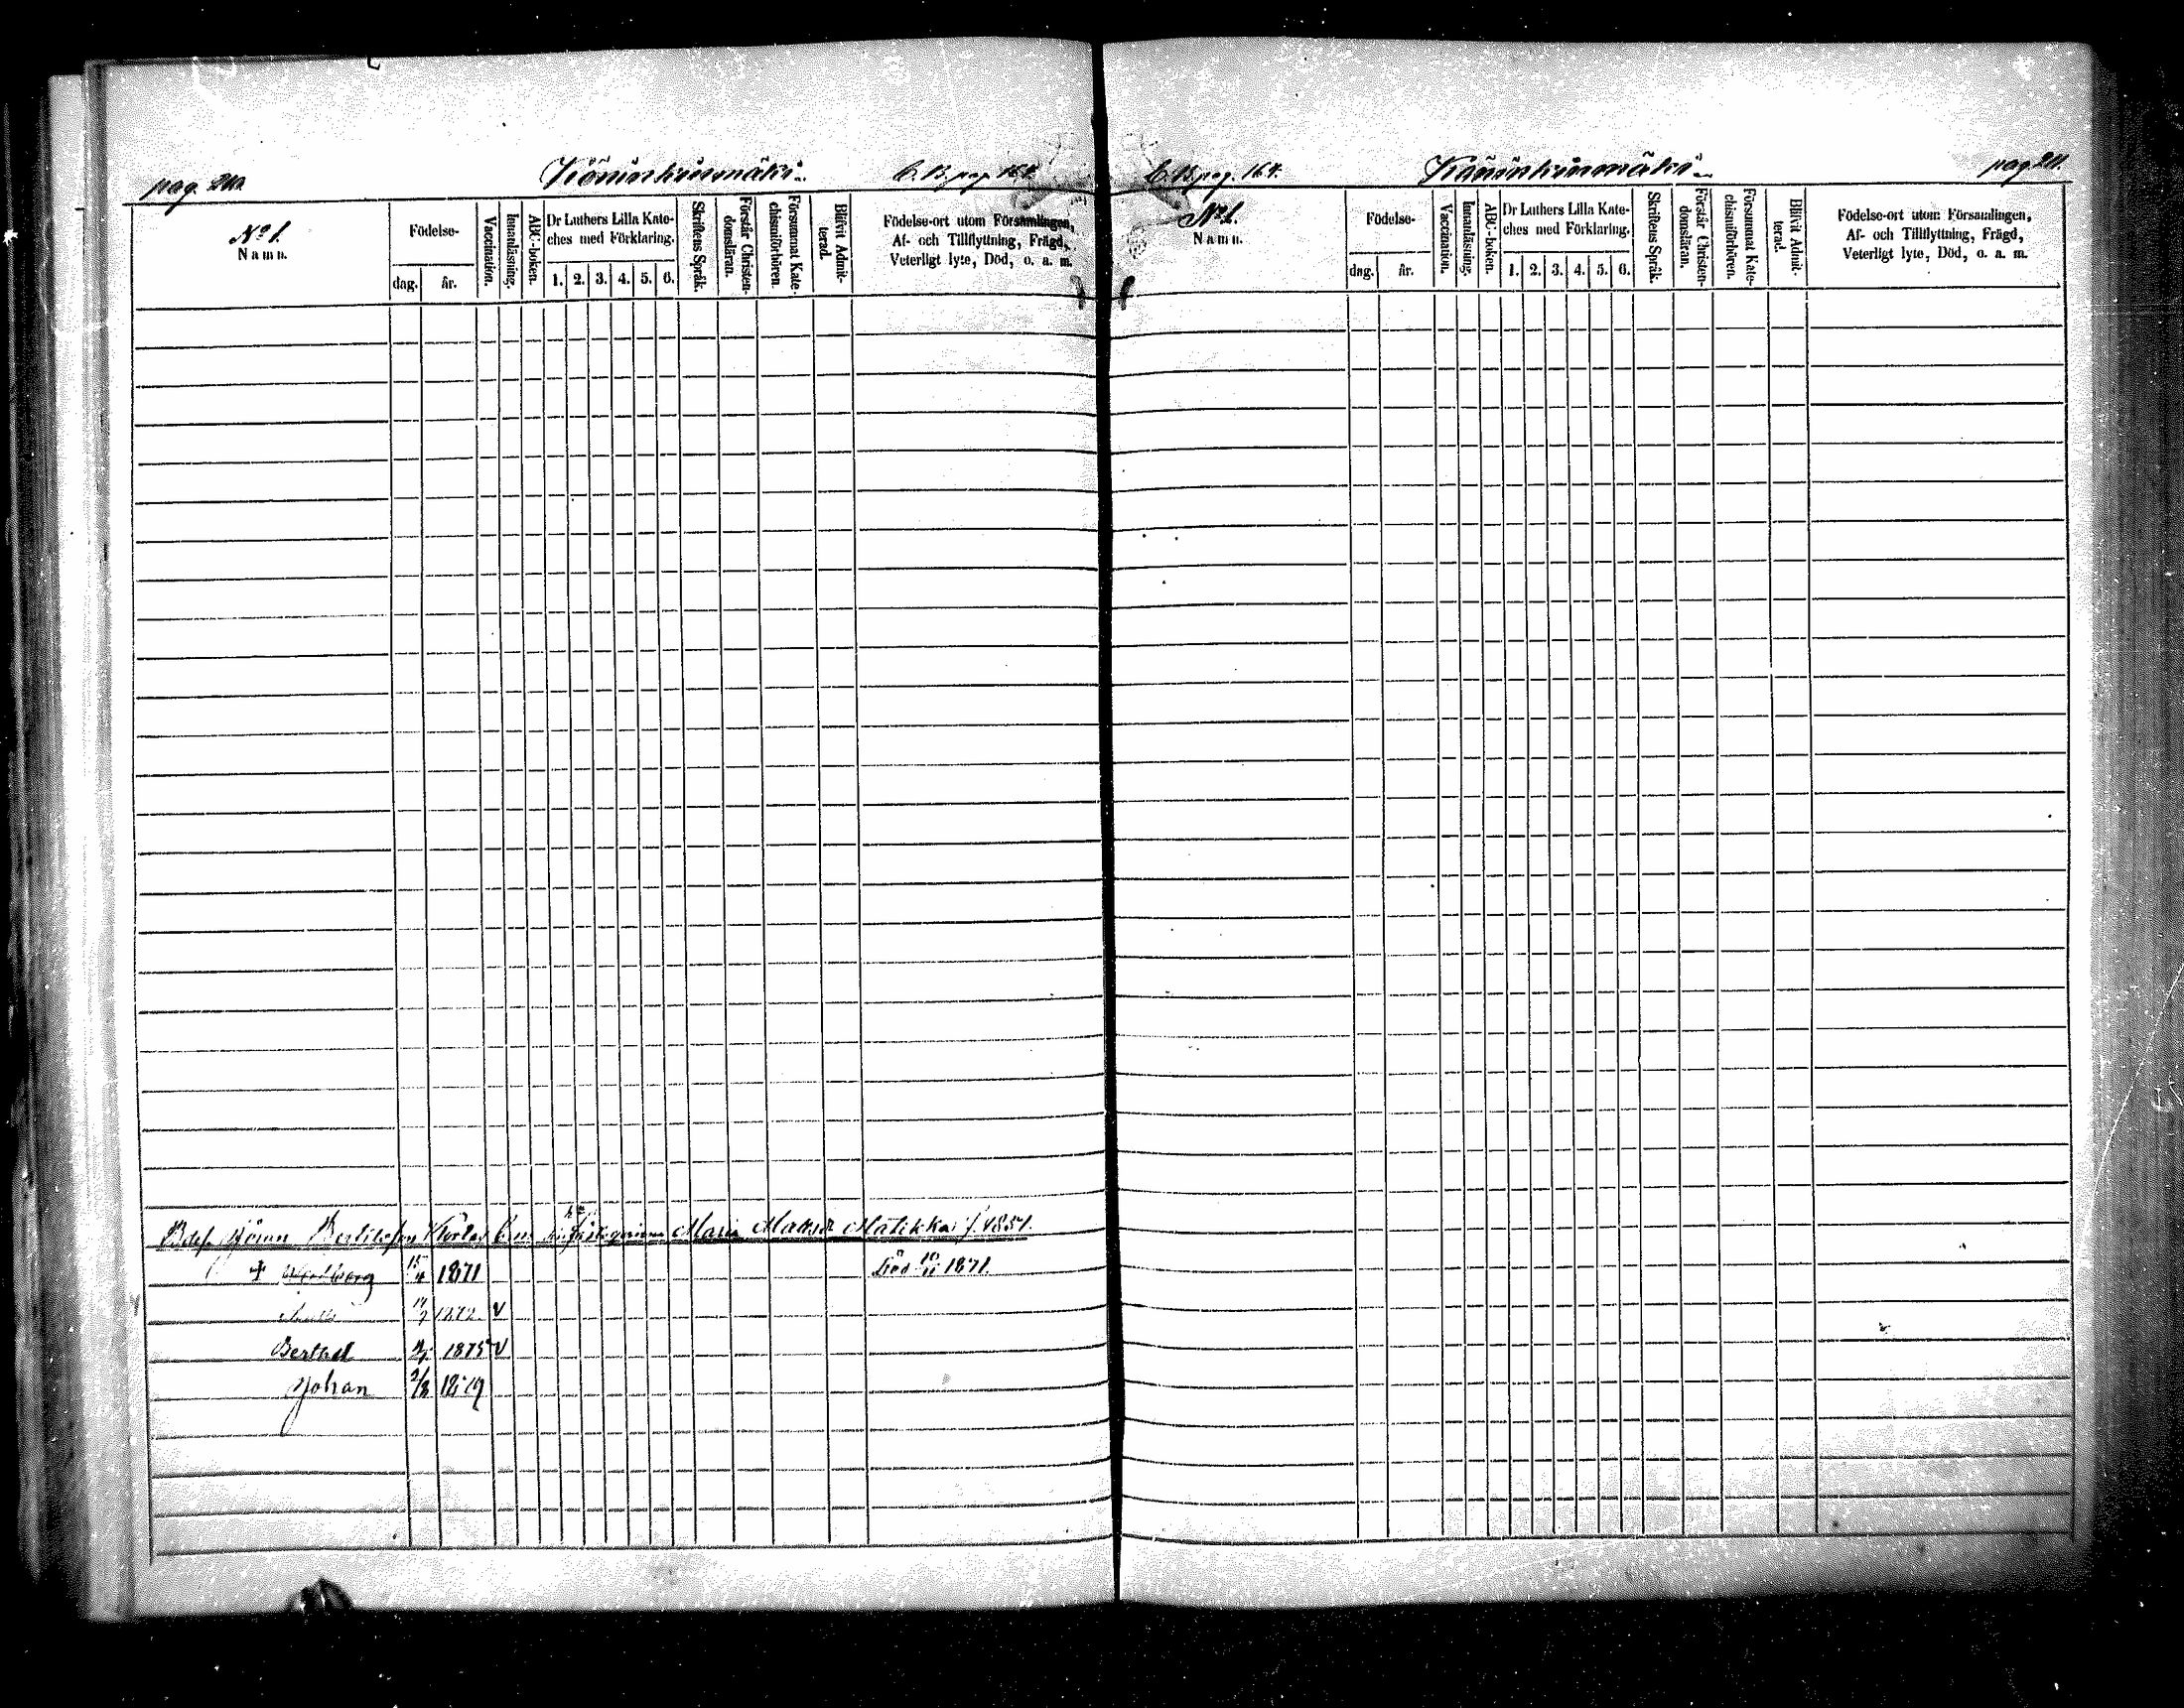 pag. 210. Köninkinmäki. C. B. pag. 164.
No 1.
Namn.
Födelse-
dag. år.
Vaccination.
Innanläsning.
ABC-boken.
Dr Luthers Lilla Kate-
ches med Förklaring.
1. 2. 3. 4. 5. 6.
Skriftens Språk.
Förstår Christen-
domsläran.
Försummat Kate-
chismiförhören.
Blifvit Admit-
terad.
Födelse-ort utom Församlingen,
Af- och Tillflyttning, Frägd,
Veterligt lyte, Död, o. a. m.
Jöran Bertilsson Maria Matsdr Matikka f. 1851.
1871 Död 1871.
1872 v
Berthel 1875 v
Johan 2/8 1879
C. B. pag. 164. Köninkinmäki pag 211.
No 1.
Namn.
Födelse-
dag. år.
Vaccination.
Innanläsning.
ABC-boken.
Dr Luthers Lilla Kate-
ches med Förklaring.
1. 2. 3. 4. 5. 6.
Skriftens Språk.
Förstår Christen-
domsläran.
Försummat Kate-
chismiförhören.
Blifvit Admit-
terad.
Födelse-ort utom Församlingen,
Af- och Tillflyttning, Frägd,
Veterligt lyte, Död, o. a. m.